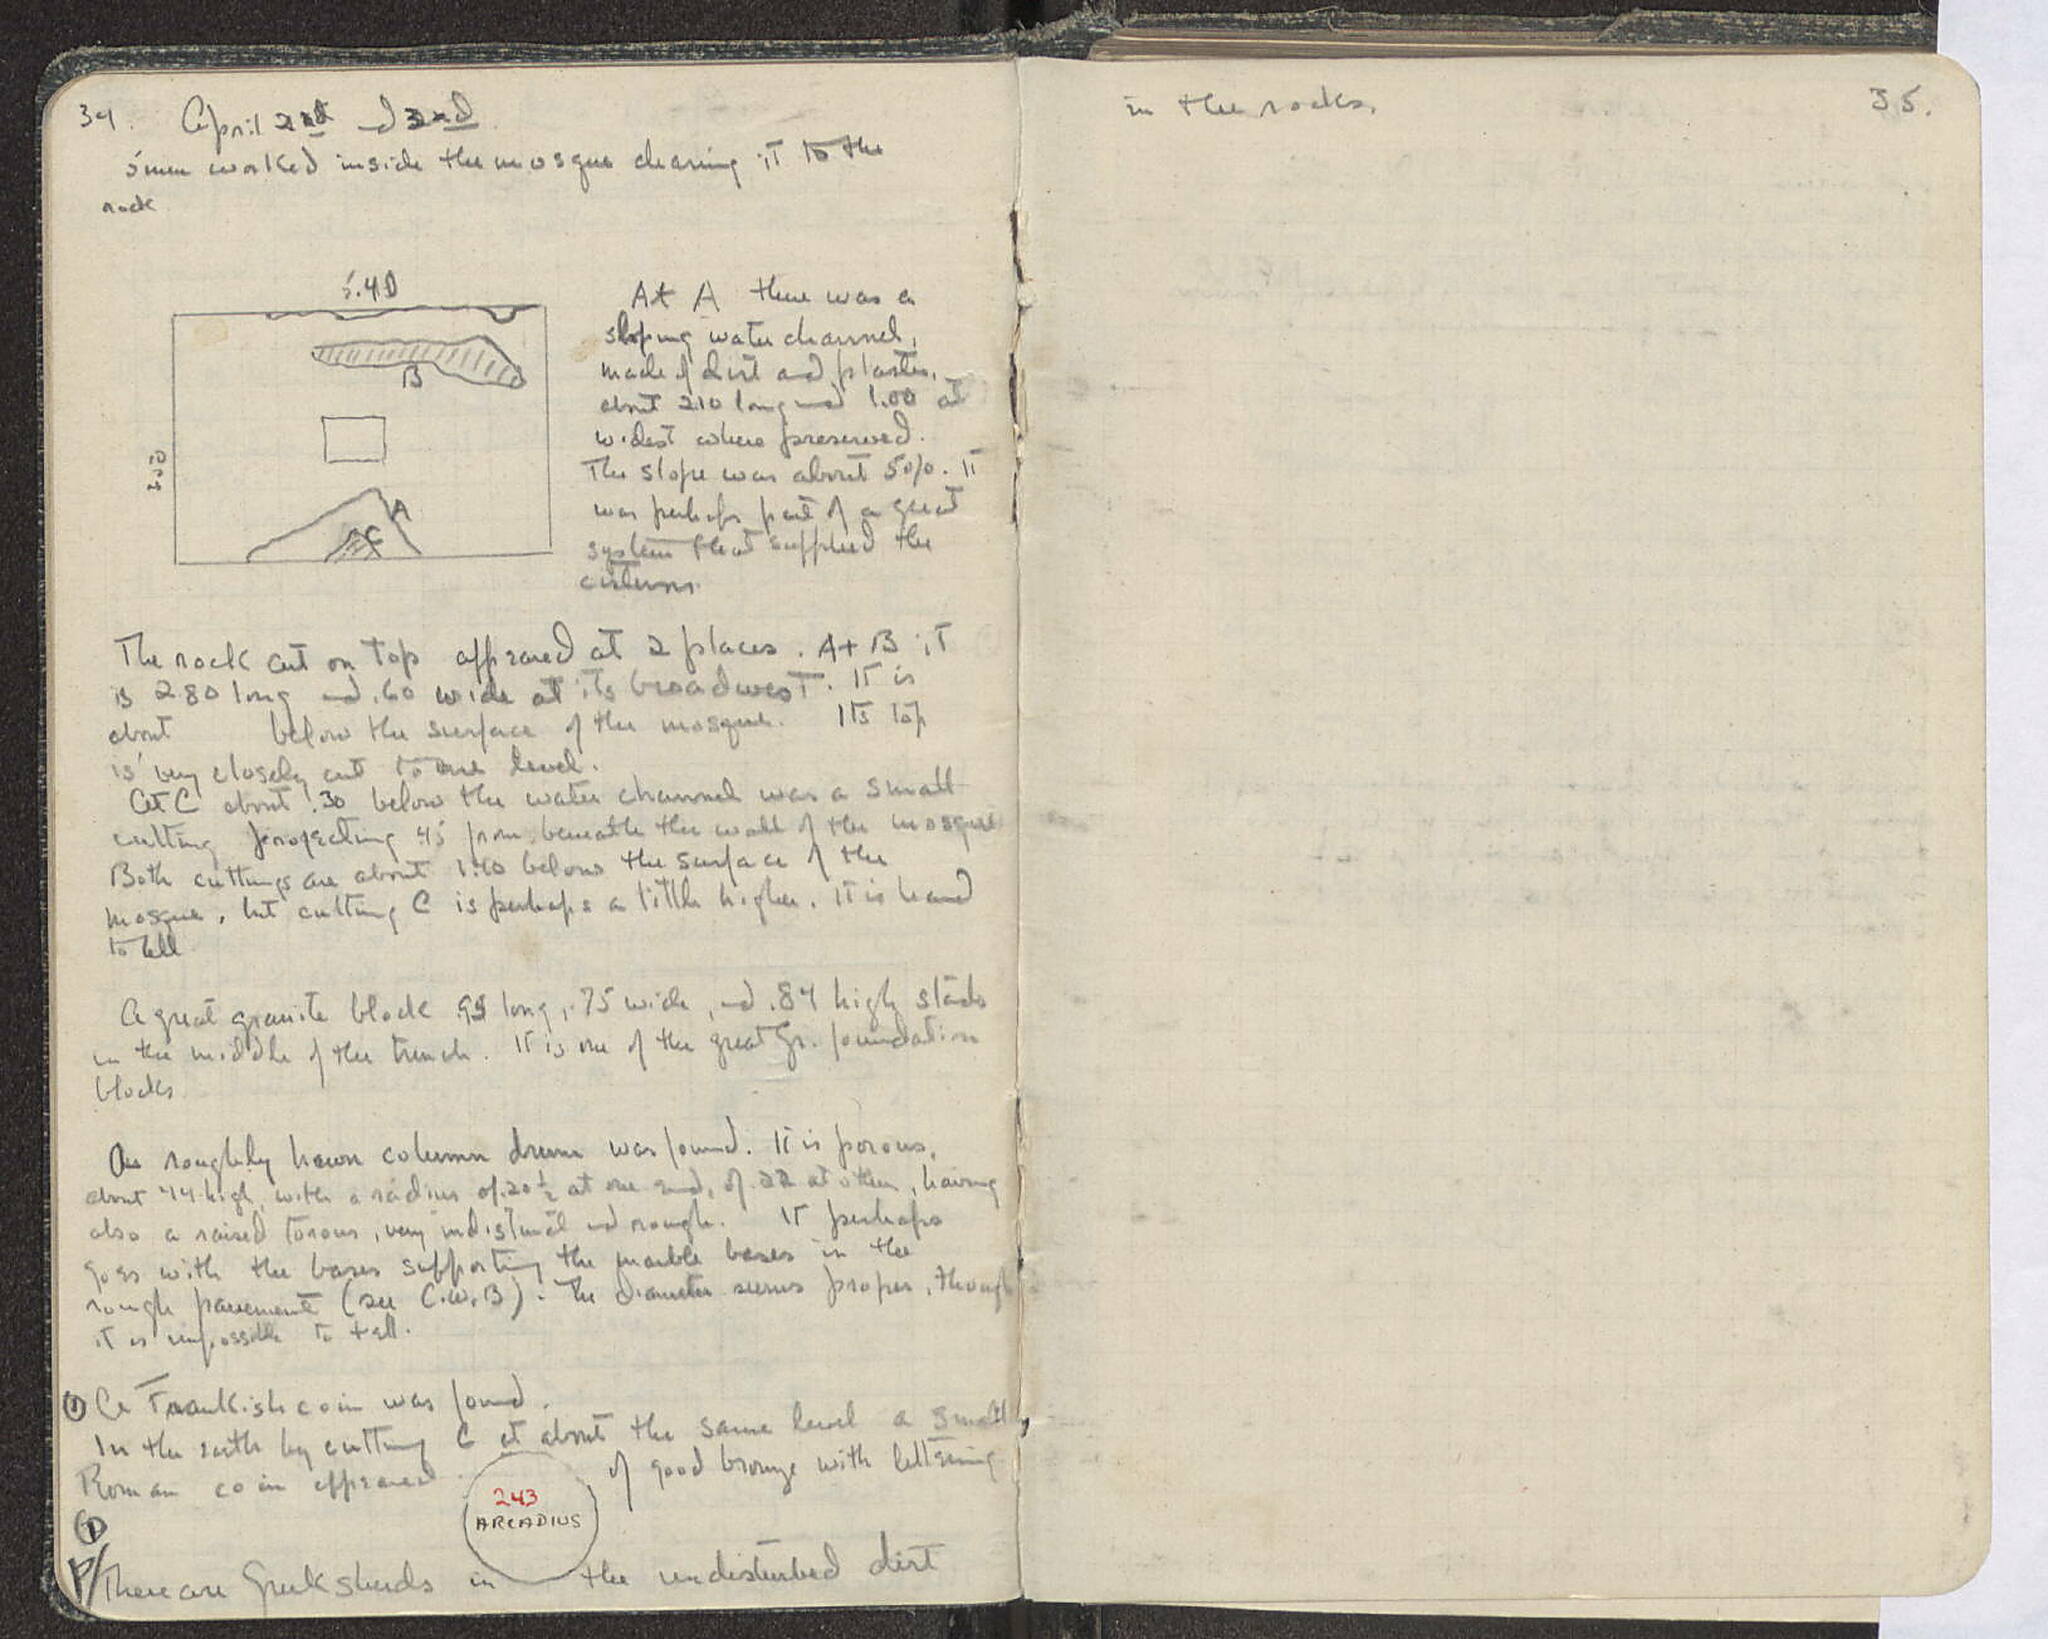 34. April 2nd and 3rd
5 men worked inside the mosque clearing it to the
rock
5.40
B
A
C
At A there was a
sloping water channel,
made of dirt and plaster,
about 2.10 long and 1.00 at
widest where preserved.
The slope was about 50%. It
was perhaps part of a great
system that supplied the
cisterns.
The rock cut on top appeared at 2 places. A + B it
is 2.80 long and .60 wide at its broadwest. It is
about below the surface of the mosque. Its top
is very closely cut to one level.
At C about .30 below the water channel was a small
cutting projecting .45 from beneath the wall of the mosque
Both cuttings are about 1.40 below the surface of the
mosque, but cutting C is perhaps a little higher. It is heard
to tell
A great granite block .95 long, .75 wide, and .84 high stands
in the middle of the trench. It is one of the great Gr. foundation
blocks
A roughly hewn column drum was found. It is porous,
about .44 high, with a radius of .20½ at one end, of .22 at other, having
also a raised torous, very indistinct and rough. It perhaps
goes with the bases supporting the marble bases in the
rough pavement (see C.W.B). The diameter seems proper, though
it is impossible to tell.
① A Frankish coin was found.
In the earth by cutting C at about the same level a small,
Roman coin appeared of good bronze with lettering
243
ARCADIUS
P/ There are Greek sherds in the undisturbed dirt
in the rocks.
35.